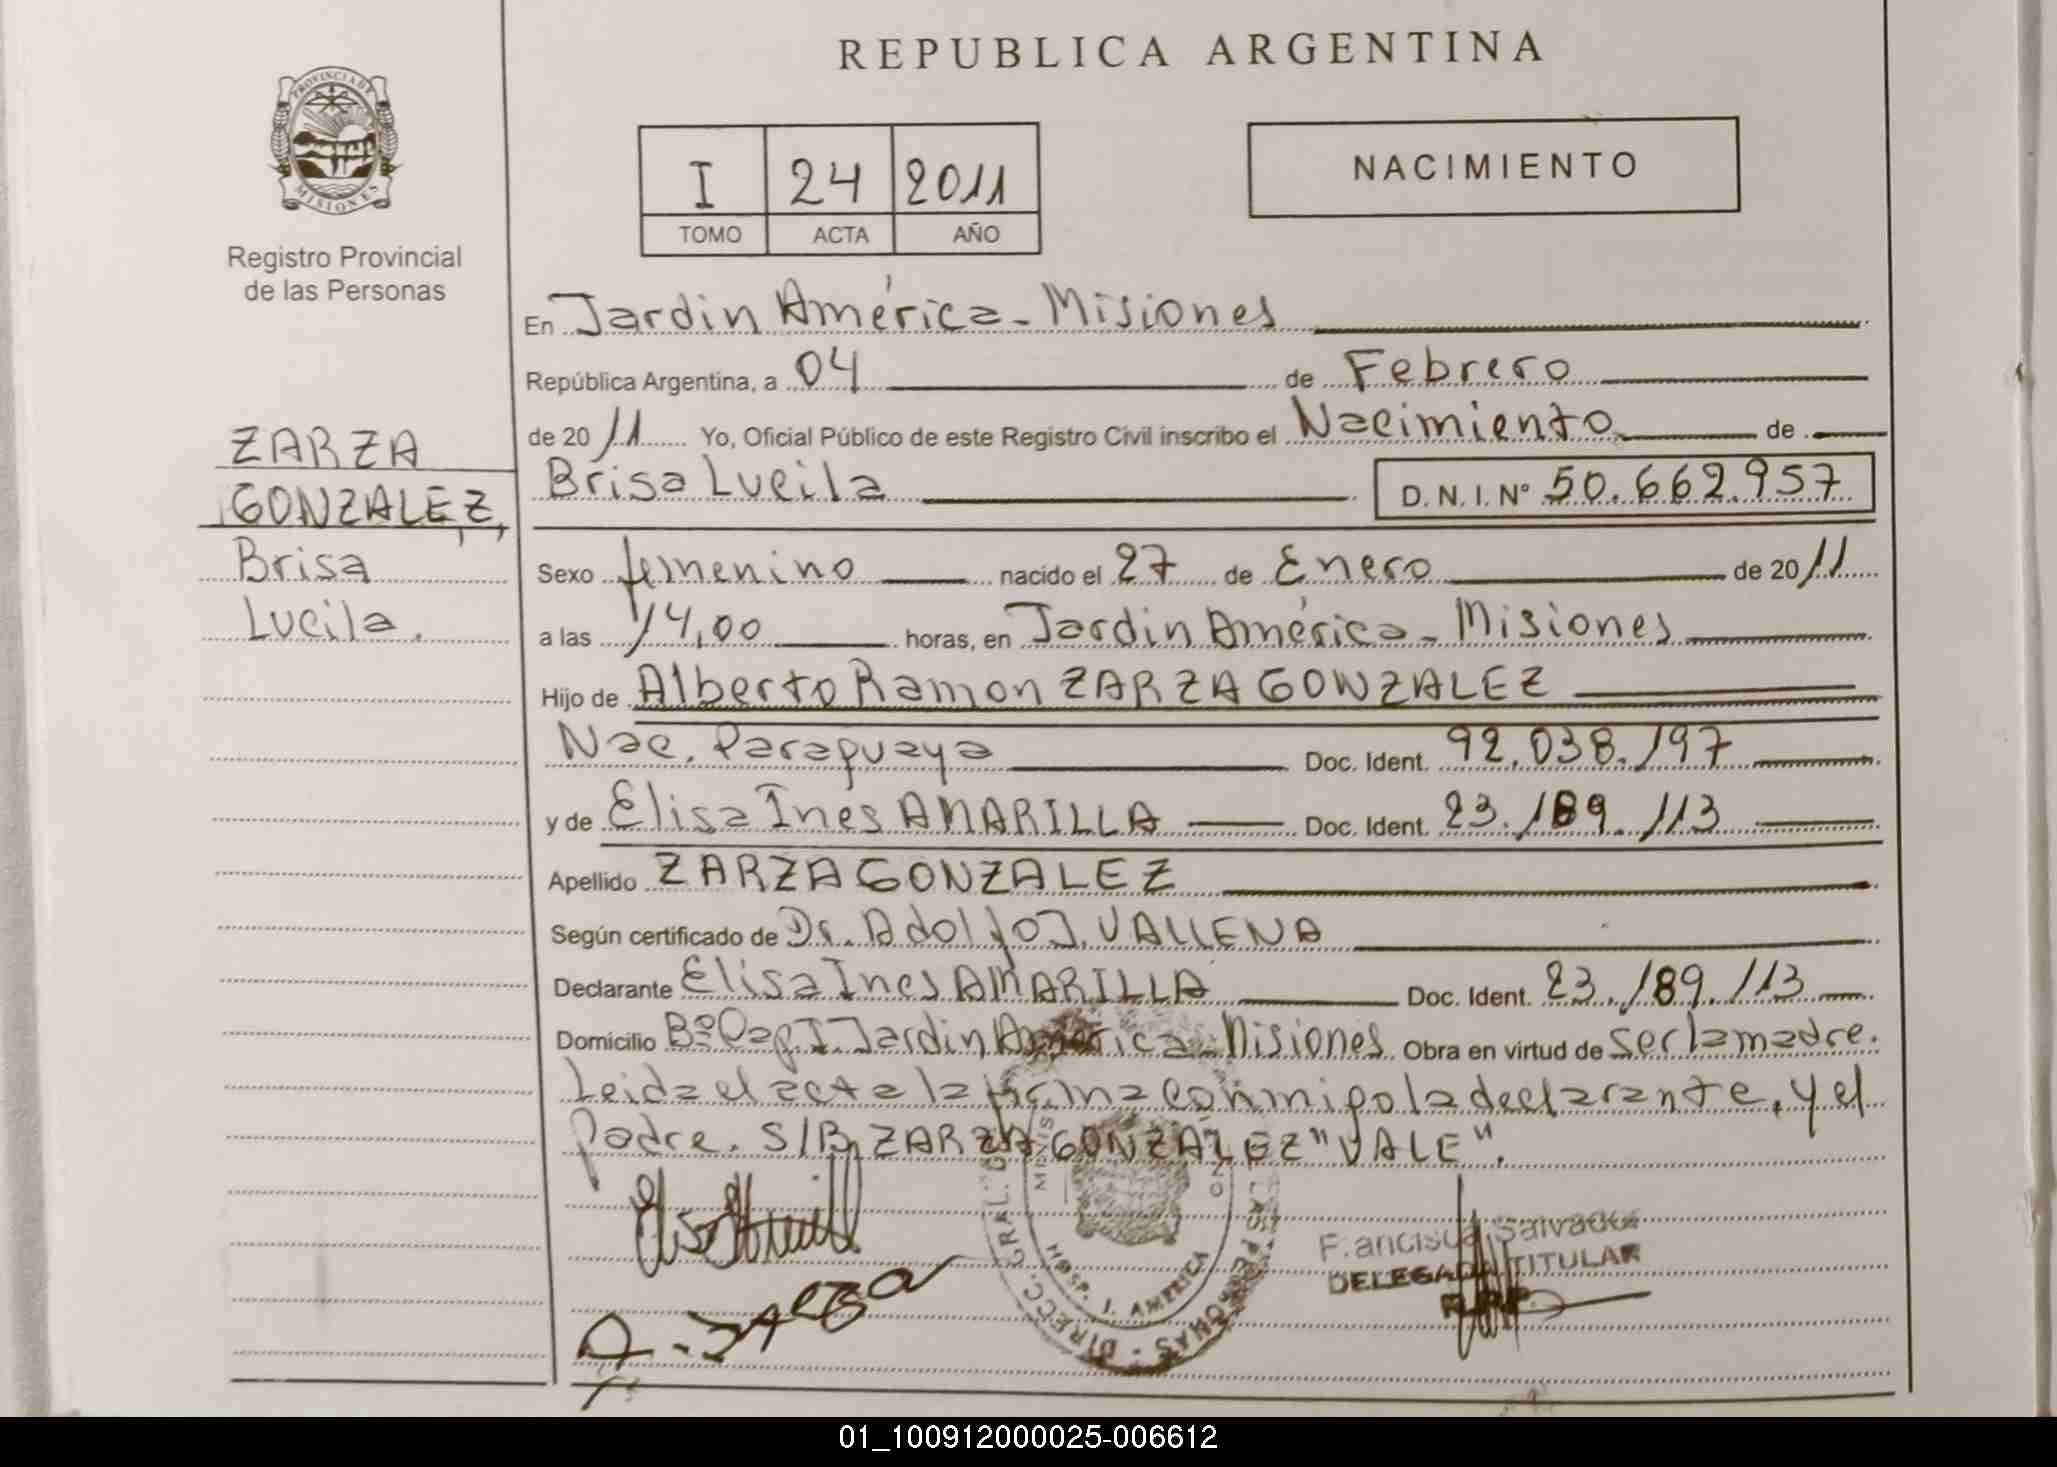 REPUBLICA ARGENTINA
PROVINCIA DE
MISIONES
Registro Provincial
de las Personas
I 24 2011
TOMO ACTA AÑO
NACIMIENTO
ZARZA
GONZALEZ,
Brisa
Lucila.
En Jardin América - Misiones
República Argentina, a 04 de Febrero
de 2011 Yo, Oficial Público de este Registro Civil inscribo el Nacimiento de
Brisa Lucila D.N.I. Nº 50.662.957
Sexo femenino nacido el 27 de Enero de 2011
a las 14,00 horas, en Jardin América - Misiones
Hijo de Alberto Ramon ZARZA GONZALEZ
Nac. Paraguaya Doc. Ident. 92.038.197
y de Elisa Ines AMARILLA Doc. Ident. 23.189.113
Apellido ZARZA GONZALEZ
Según certificado de Dr. Adolfo J. VALLENA
Declarante Elisa Ines AMARILLA Doc. Ident. 23.189.113
Domicilio Bº Pap. I. Jardin América - Misiones Obra en virtud de ser la madre.
Leida el acta la firma conmigo la declarante, y el
Padre. S/B, ZARZA GONZALEZ "VALE".
DIRECC. GRAL. PERSONAS
HOSP. J. AMERICA
Salvador
DELEGADA TITULAR
R.P.P.
01_100912000025-006612